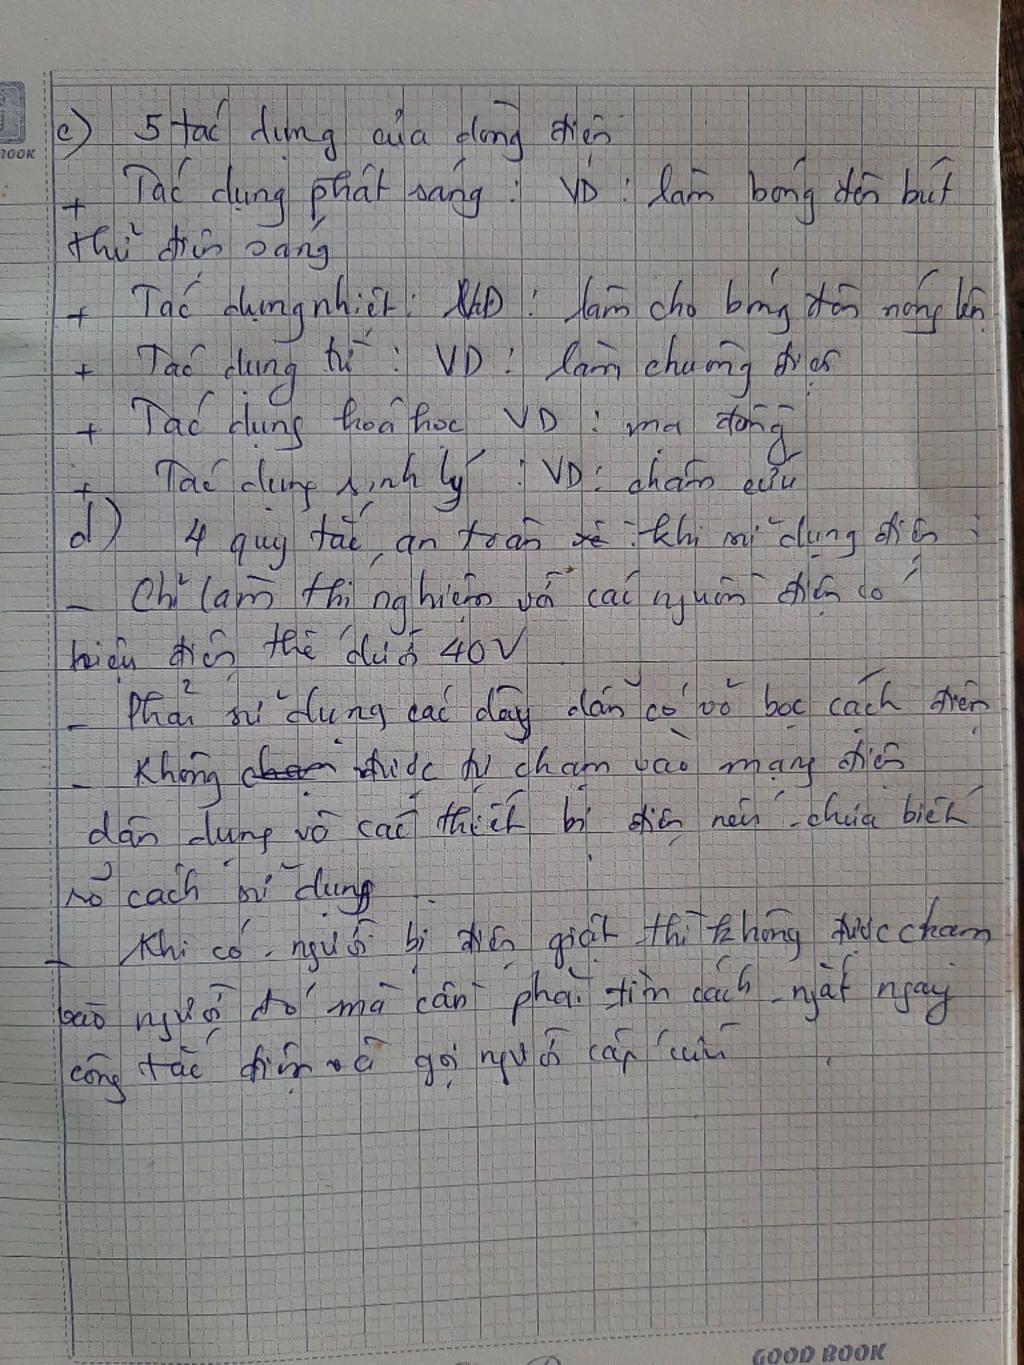 c) 5 tác dụng của dòng điện
+ Tác dụng phát sáng : VD : làm bóng đèn bút
thử điện sáng
+ Tác dụng nhiệt : VD : làm cho bóng đèn nóng lên
+ Tác dụng từ : VD : làm chuông điện
+ Tác dụng hoá học VD : mạ đồng
+ Tác dụng sinh lý : VD : châm cứu
d) 4 quy tắc an toàn khi sử dụng điện :
- Chỉ làm thí nghiệm với các nguồn điện có
hiệu điện thế dưới 40V
- Phải sử dụng các dây dẫn có vỏ bọc cách điện
- Không được tự chạm vào mạng điện
dân dụng và các thiết bị điện nếu chưa biết
rõ cách sử dụng
- Khi có người bị điện giật thì không được chạm
vào người đó mà cần phải tìm cách ngắt ngay
công tắc điện và gọi người cấp cứu
BOOK
GOOD BOOK